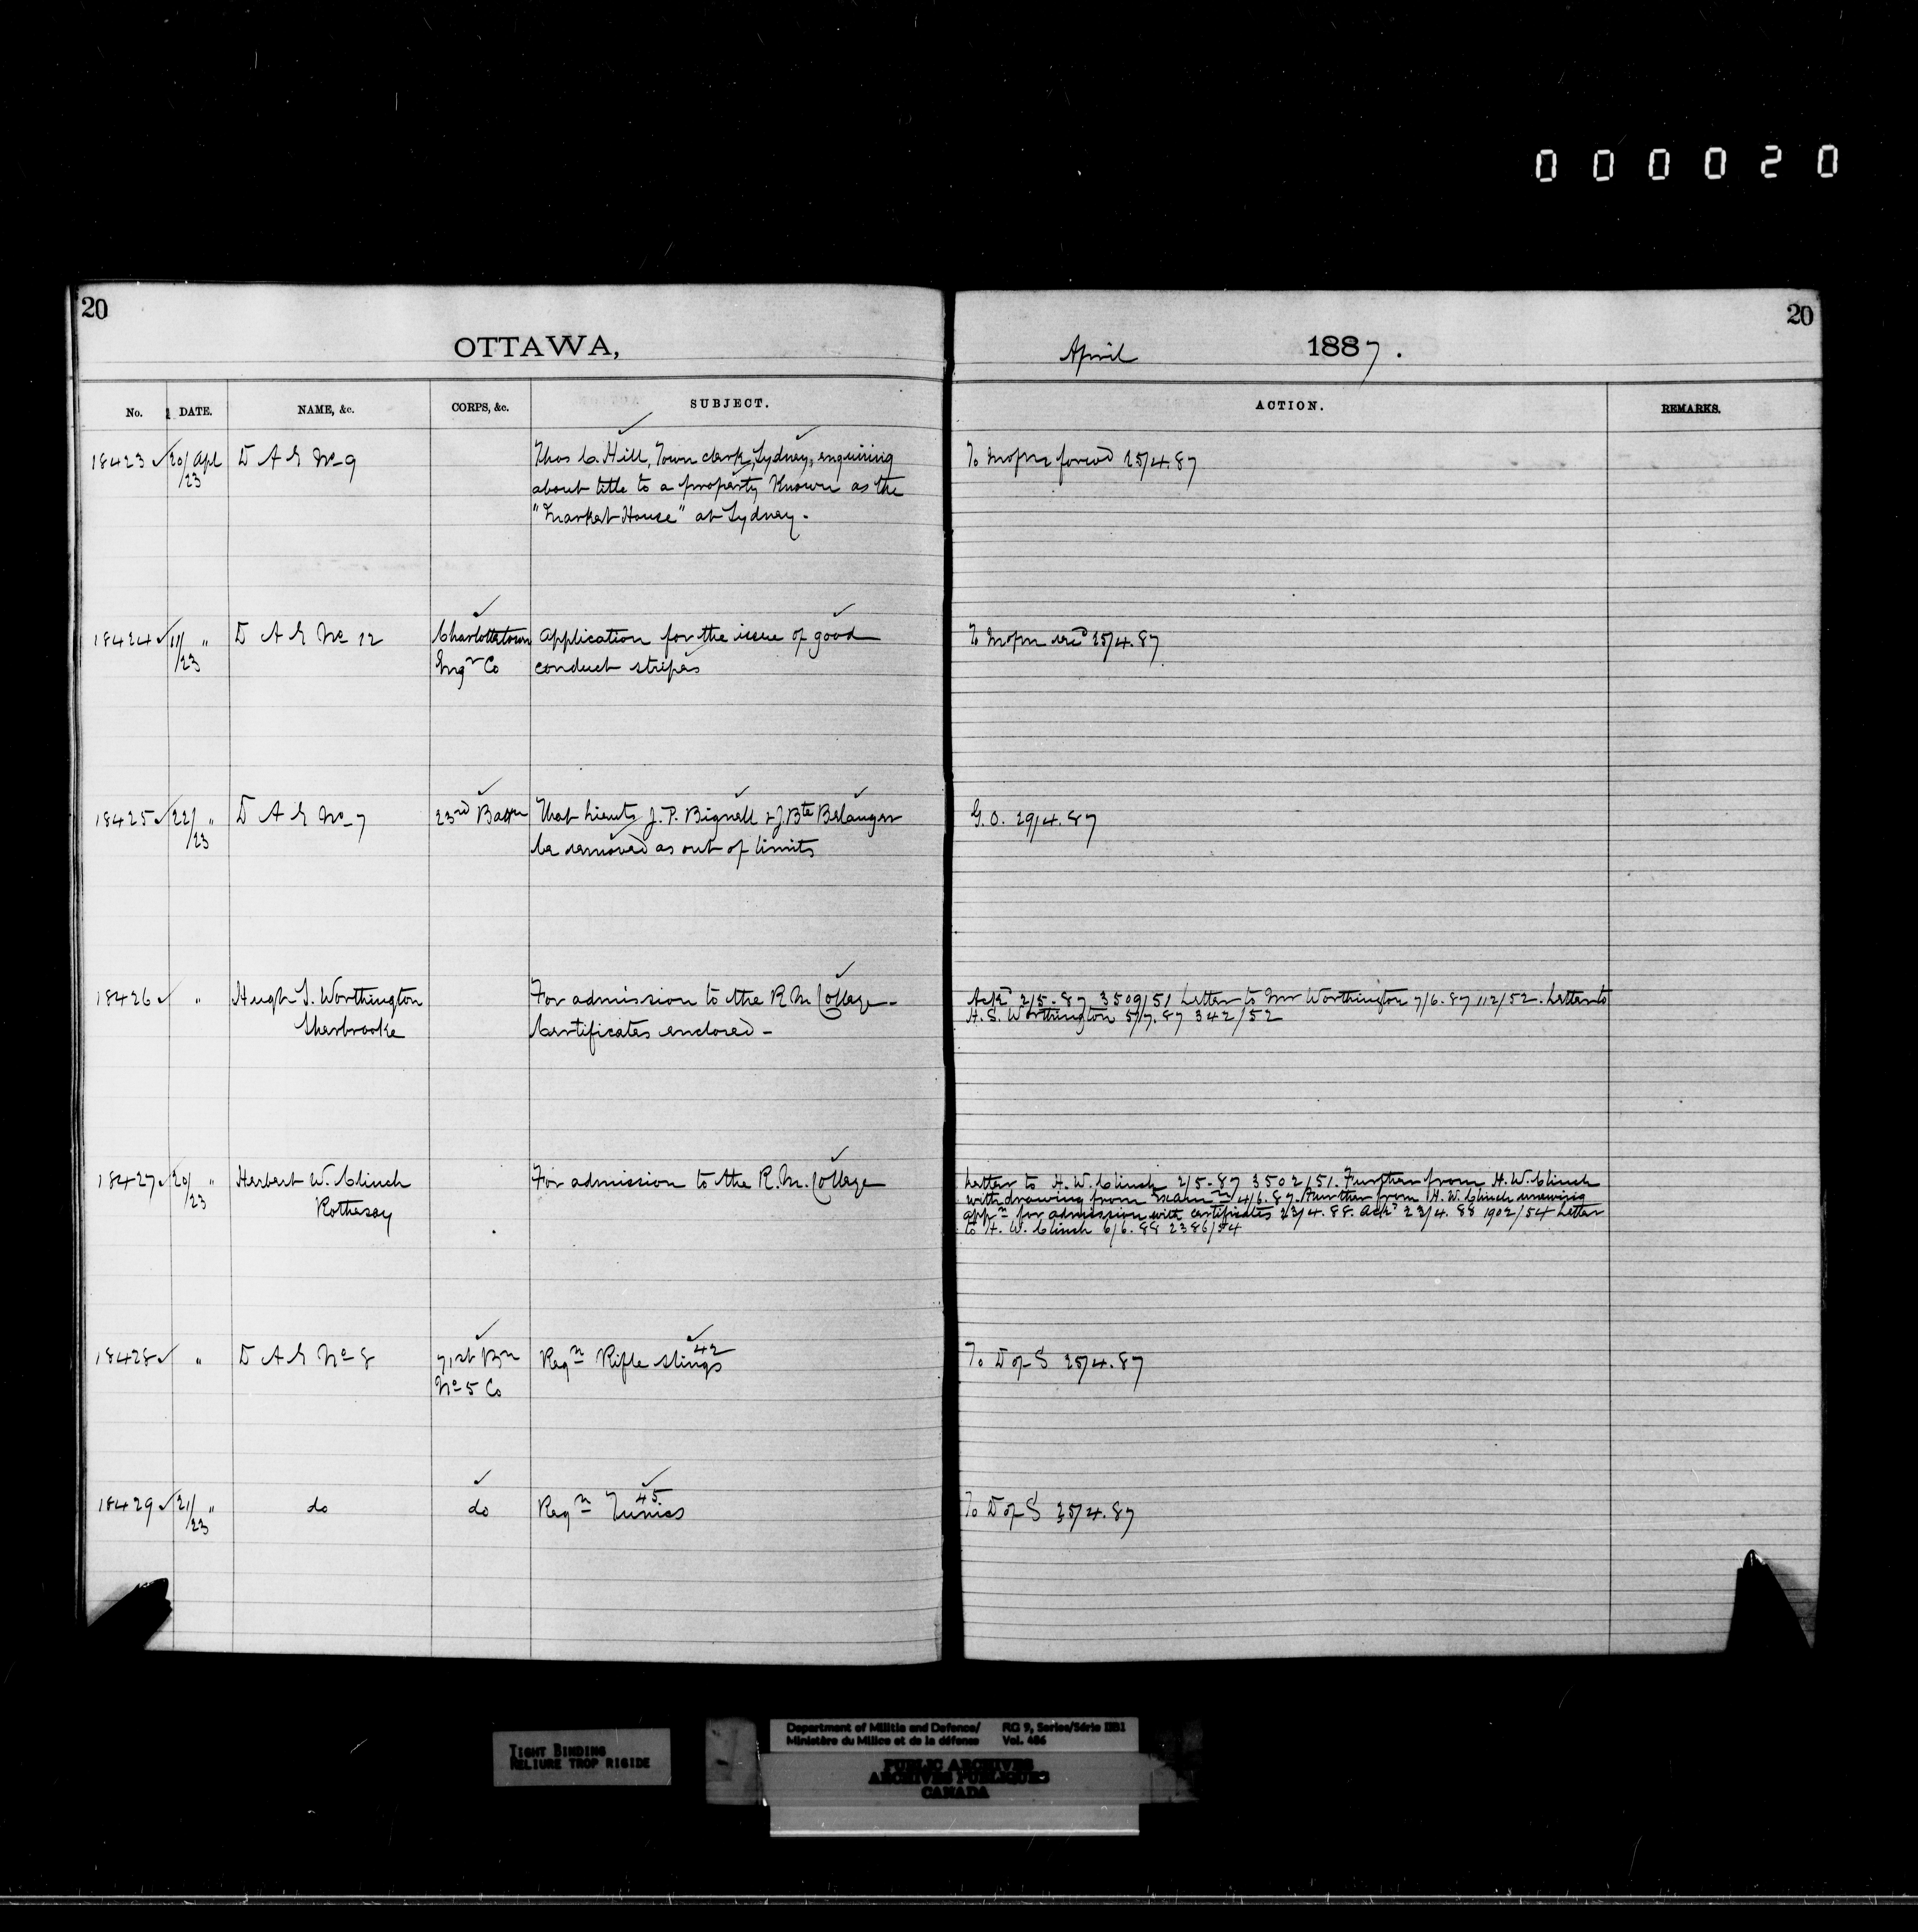 000020
20
OTTAWA,
No. DATE. NAME, &c. CORPS, &c. SUBJECT.
18423 20/23 Apl D A G No 9 Thos C. Hill, Town clerk, Sydney, enquiring
about title to a property Known as the
"Market House" at Sydney.
18424 11/23 " D A G No 12 Charlottetown Application for the issue of good
Engr Co conduct stripes
18425 22/23 " D A G No 7 23rd Battn That Lieuts J. P. Bignell & J. Bte Belanger
be removed as out of limits
18426 " Hugh S. Worthington For admission to the R M College -
Sherbrooke Certificates enclosed -
18427 20/23 " Herbert W. Clinch For admission to the R. M. College
Rothesay
18428 " D A G No 8 71st Bn Reqn Rifle slings 42
No 5 Co
18429 21/23 " do do Reqn Tunics 45
20
April 1887.
ACTION. REMARKS.
To 25/4.87
To 25/4.87
G. O. 29/4.87
Ackd 2/5-87 3509/51 Letter to Mr Worthington 7/6.87 112/52. Letter to
H. S. Worthington 5/7.87 342/52
Letter to H. W. Clinch 2/5-87 3502/51. Further from H. W. Clinch
withdrawing from 4/6.87. Further from H. W. Clinch renewing
appn for admission with certificates 23/4.88. Ackd 23/4.88 1902/54 Letter
to H. W. Clinch 6/6.88 2386/54
To D of S 25/4.87
To D of S 25/4.87
TIGHT BINDING
RELIURE TROP RIGIDE
Department of Militia and Defence/ RG 9, Series/Série IIB1
Ministère du Milice et de la défense Vol. 406
PUBLIC ARCHIVES
ARCHIVES PUBLIQUES
CANADA